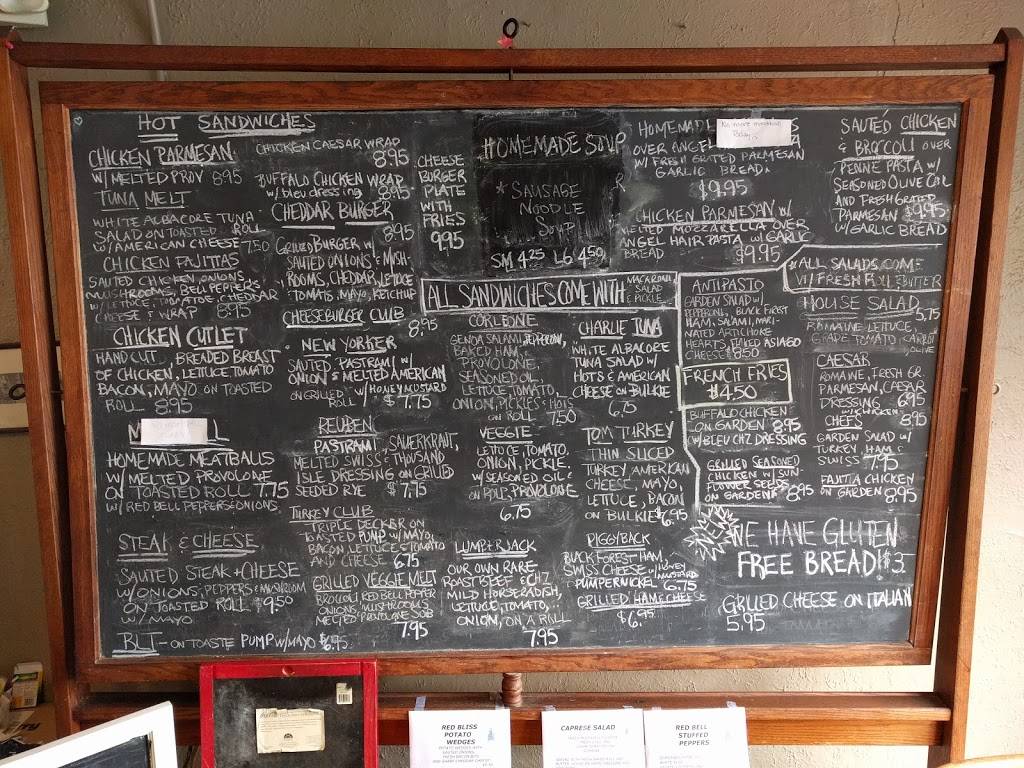 HOT SANDWICHES
CHICKEN PARMESAN
W/ MELTED PROV 8.95
TUNA MELT
WHITE ALBACORE TUNA
SALAD ON TOASTED ROLL
W/AMERICAN CHEESE 7.50
CHICKEN FAJITAS
SAUTED CHICKEN, ONIONS,
MUSHROOMS, BELL PEPPERS,
W/LETTUCE, TOMATOE, CHEDDAR
CHEESE & WRAP 8.95
CHICKEN CUTLET
HAND CUT, BREADED BREAST
OF CHICKEN, LETTUCE TOMATO
BACON, MAYO ON TOASTED
ROLL 8.95
HOMEMADE MEATBALLS
W/ MELTED PROVOLONE
ON TOASTED ROLL 7.75
W/ RED BELL PEPPERS & ONIONS.
STEAK & CHEESE
SAUTED STEAK + CHEESE
W/ONIONS, PEPPERS & MUSHROOM
ON TOASTED ROLL $9.50
W/ MAYO
BLT - ON TOASTE PUMP W/MAYO $6.95
CHICKEN CAESAR WRAP
8.95
BUFFALO CHICKEN WRAP
W/ bleu dressing 8.95
CHEDDAR BURGER
8.95
GRILLED BURGER W/
SAUTED ONIONS & MUSH-
ROOMS, CHEDDAR, LETTUCE
TOMATO, MAYO, KETCHUP
CHEESEBURGER CLUB
8.95
NEW YORKER
SAUTED, PASTRAMI W/
ONION & MELTED AMERICAN
ON GRILLED W/ HONEY MUSTARD
ROLL $7.75
REUBEN
PASTRAMI, SAUERKRAUT,
MELTED SWISS & THOUSAND
ISLE DRESSING ON GRILLED
SEEDED RYE $7.75
TURKEY CLUB
TRIPLE DECKER ON
TOASTED PUMP W/MAYO,
BACON LETTUCE & TOMATO
AND CHEESE 6.75
GRILLED VEGGIE MELT
BROCOLI, RED BELL PEPPER
ONIONS, MUSHROOMS
MELTED PROVOLONE SUB
7.95
CHEESE
BURGER
PLATE
WITH
FRIES
9.95
HOMEMADE SOUP
* SAUSAGE
NOODLE
SOUP
SM 4.25 LG 4.50
ALL SANDWICHES COME WITH
MACARONI
SALAD
& PICKLE
CORLEONE
GENOA SALAMI, PEPPERONI,
BAKED HAM,
PROVOLONE,
SEASONED OIL
LETTUCE, TOMATO,
ONION, PICKLES & HOTS
ON ROLL 7.50
VEGGIE
LETTUCE, TOMATO,
ONION, PICKLE,
W/ SEASONED OIL &
ON ROLL, PROVOLONE
6.75
LUMBERJACK
OUR OWN RARE
ROAST BEEF & CHZ
MILD HORSERADISH,
LETTUCE, TOMATO,
ONION, ON A ROLL
7.95
CHARLIE TUNA
WHITE ALBACORE
TUNA SALAD W/
HOTS & AMERICAN
CHEESE ON BULKIE
6.75
TOM TURKEY
THIN SLICED
TURKEY, AMERICAN
CHEESE, MAYO,
LETTUCE, BACON
ON BULKIE $6.95
PIGGYBACK
BLACK FOREST HAM,
SWISS CHEESE W/ HONEY
MUSTARD
PUMPERNICKEL 6.75
GRILLED HAM & CHEESE
$6.95
HOMEMADE
No more meatballs
Today :
OVER ANGEL
W/ FRESH GRATED PARMESAN
GARLIC BREAD.
$9.95
CHICKEN PARMESAN W/
MELTED MOZZARELLA OVER
ANGEL HAIR PASTA W/ GARLIC
BREAD. $9.95
SAUTÉD CHICKEN
& BROCCOLI OVER
PENNE PASTA W/
SEASONED OLIVE OIL
AND FRESH GRATED
PARMESAN $9.95
W/ GARLIC BREAD
*ALL SALADS COME
W/ FRESH ROLL & BUTTER
ANTIPASTO
GARDEN SALAD W/
PEPPERONI, BLACK FOREST
HAM, SALAMI, MARI-
NATED ARTICHOKE
HEARTS, FLAKED ASIAGO
CHEESE 8.50
FRENCH FRIES
$4.50
BUFFALO CHICKEN
ON GARDEN 8.95
W/BLEU CHZ DRESSING
GRILLED SEASONED
CHICKEN W/ SUN-
FLOWER SEEDS
ON GARDEN 8.95
HOUSE SALAD
5.75
ROMAINE LETTUCE,
GRAPE TOMATO, CARROT
OLIVE
CAESAR
ROMAINE, FRESH GR.
PARMESAN, CAESAR
DRESSING 6.95
W/CHICKEN 8.95
CHEFS
GARDEN SALAD W/
TURKEY, HAM &
SWISS 7.95
FAJITIA CHICKEN
ON GARDEN 8.95
WE HAVE GLUTEN
FREE BREAD! $3.
GRILLED CHEESE ON ITALIAN
5.95
RED BLISS
POTATO
WEDGES
CAPRESE SALAD
RED BELL
STUFFED
PEPPERS